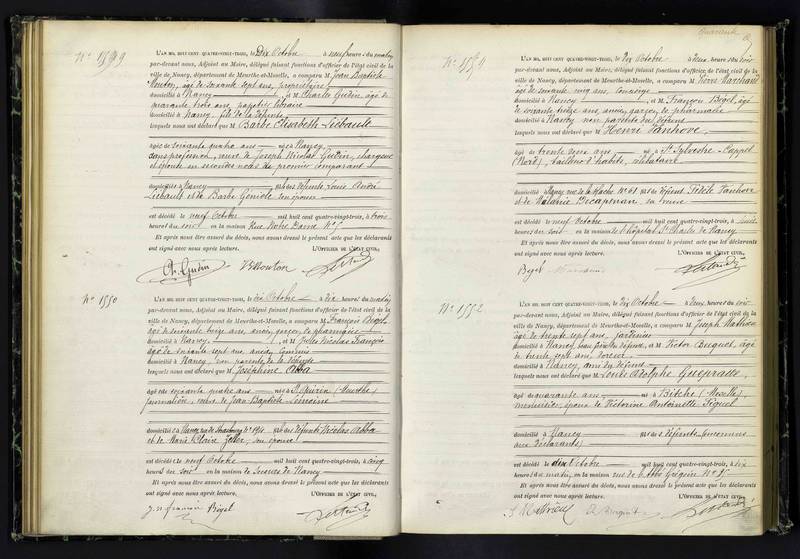 N° 1549
L'AN MIL HUIT CENT QUATRE-VINGT-TROIS, le Dix Octobre à neuf heures du matin
par-devant nous, Adjoint au Maire, délégué faisant fonctions d'officier de l'état civil de la
ville de Nancy, département de Meurthe-et-Moselle, a comparu M. Jean Baptiste
Mouton, âgé de soixante sept ans, propriétaire
domicilié à Nancy, et M. Charles Guérin, âgé de
quarante trois ans, papetier libraire
domicilié à Nancy, fils de la défunte
lesquels nous ont déclaré que M Barbe Elisabeth Liébault
âgé de soixante quatre ans née à Nancy
sans profession, veuve de Joseph Nicolas Guérin,
et épouse en secondes noces du premier comparant
domicilié à Nancy fille des défunts Louis André
Liébault et de Barbe son épouse
est décédé le neuf Octobre mil huit cent quatre-vingt-trois, à trois
heures du soir en la maison Rue Notre Dame N° 5
Et après nous être assuré du décès, nous avons dressé le présent acte que les déclarants
ont signé avec nous après lecture. L'OFFICIER DE L'ÉTAT CIVIL,
Ch. Guérin Mouton
N° 1550
L'AN MIL HUIT CENT QUATRE-VINGT-TROIS, le dix Octobre à dix heures du matin
par-devant nous, Adjoint au Maire, délégué faisant fonctions d'officier de l'état civil de la
ville de Nancy, département de Meurthe-et-Moselle, a comparu M. François Bigel
âgé de soixante treize ans, ancien garçon de pharmacie
domicilié à Nancy, et M. Jules Nicolas François
âgé de soixante sept ans, ancien commis
domicilié à Nancy, non parents de la défunte
lesquels nous ont déclaré que M Joséphine Abba
âgé de soixante quatre ans née à St Quirin (Meurthe)
journalière, veuve de Jean Baptiste Lemoine
domicilié à Nancy, rue de Strasbourg fille des défunts Nicolas Abba
et de Marie Claire Zoller, son épouse
est décédé le neuf Octobre mil huit cent quatre-vingt-trois, à cinq
heures du soir en la maison de Secours de Nancy
Et après nous être assuré du décès, nous avons dressé le présent acte que les déclarants
ont signé avec nous après lecture. L'OFFICIER DE L'ÉTAT CIVIL,
J. N. François Bigel
N° 1551
L'AN MIL HUIT CENT QUATRE-VINGT-TROIS, le dix Octobre à deux heures du soir
par-devant nous, Adjoint au Maire, délégué faisant fonctions d'officier de l'état civil de la
ville de Nancy, département de Meurthe-et-Moselle, a comparu M. Pierre Marchand
âgé de soixante cinq ans, concierge
domicilié à Nancy, et M. François Bigel, âgé
de soixante treize ans, ancien garçon de pharmacie
domicilié à Nancy non parents du défunt
lesquels nous ont déclaré que M Henri Vanhove
âgé de trente deux ans né à St Sylvestre-Cappel
(Nord), tailleur d'habits, célibataire
domicilié à Nancy, rue de la Hache N° 61 fils du défunt Fidèle Vanhove
et de Mélanie sa veuve
est décédé le neuf Octobre mil huit cent quatre-vingt-trois, à
heures du soir en la maison de l'hôpital St Charles de Nancy
Et après nous être assuré du décès, nous avons dressé le présent acte que les déclarants
ont signé avec nous après lecture. L'OFFICIER DE L'ÉTAT CIVIL,
Bigel Marchand
N° 1552
L'AN MIL HUIT CENT QUATRE-VINGT-TROIS, le Dix Octobre à deux heures du soir
par-devant nous, Adjoint au Maire, délégué faisant fonctions d'officier de l'état civil de la
ville de Nancy, département de Meurthe-et-Moselle, a comparu M. Joseph
âgé de trente sept ans, jardinier
domicilié à Nancy, beau frère du défunt, et M. Victor, âgé
de trente sept ans, doreur
domicilié à Nancy, ami du défunt
lesquels nous ont déclaré que M Louis Adolphe
âgé de quarante ans né à Bitche (Moselle),
menuisier, époux de Victorine Antoinette
domicilié à Nancy fils des défunts (inconnus
aux déclarants)
est décédé le dix Octobre mil huit cent quatre-vingt-trois, à six
heures du matin, en la maison rue de l'abbé Grégoire N°
Et après nous être assuré du décès, nous avons dressé le présent acte que les déclarants
ont signé avec nous après lecture. L'OFFICIER DE L'ÉTAT CIVIL,